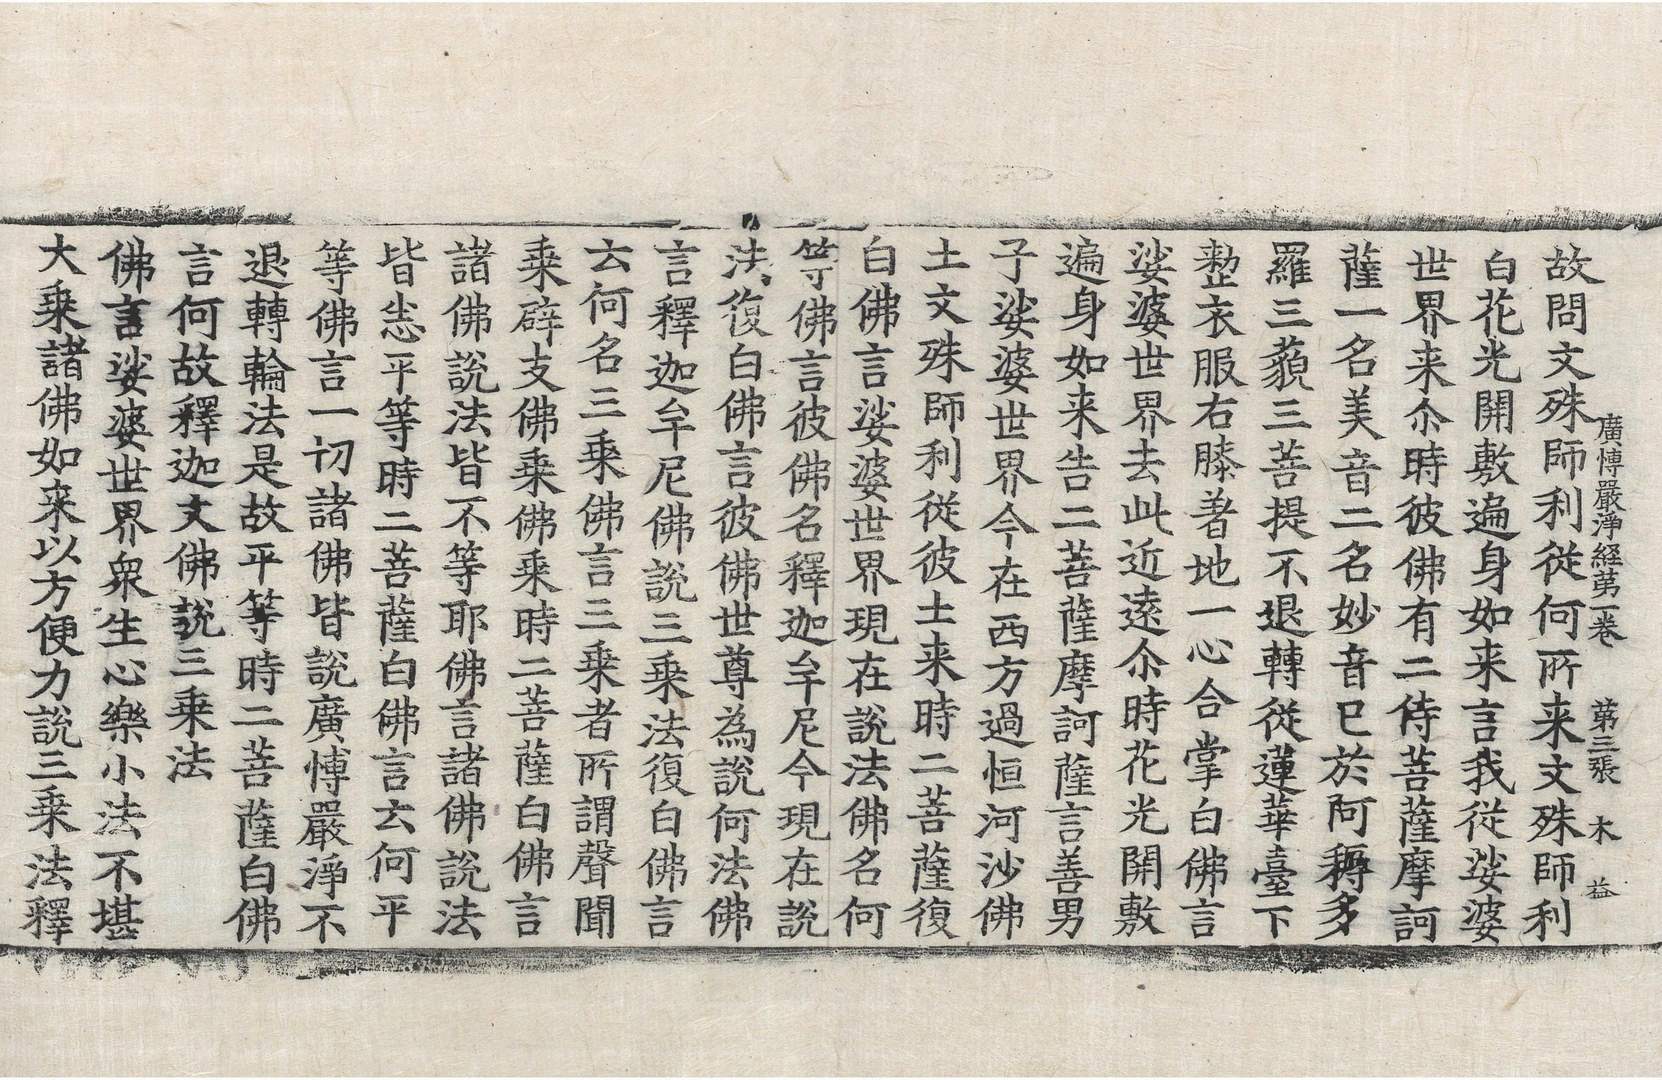 廣博嚴淨経苐一卷 苐三張 木 益
故問文殊師利從何所来文殊師利
白花光開敷遍身如来言我從娑婆
世界来尒時彼佛有二侍菩薩摩訶
薩一名美音二名妙音已於阿耨多
羅三藐三菩提不退轉從蓮華臺下
整衣服右膝著地一心合掌白佛言
娑婆世界去此近遠尒時花光開敷
遍身如来告二菩薩摩訶薩言善男
子娑婆世界今在西方過恒河沙佛
土文殊師利從彼土来時二菩薩復
白佛言娑婆世界現在說法佛名何
等佛言彼佛名釋迦牟尼今現在説
法復白佛言彼佛世尊為說何法佛
言釋迦牟尼佛說三乗法復白佛言
云何名三乗佛言三乗者所謂聲聞
乗辟支佛乗佛乗時二菩薩白佛言
諸佛說法皆不等耶佛言諸佛說法
皆悉平等時二菩薩白佛言云何平
等佛言一切諸佛皆說廣博嚴淨不
退轉輪法是故平等時二菩薩白佛
言何故釋迦文佛說三乗法
佛言娑婆世界衆生心樂小法不堪
大乗諸佛如来以方便力說三乗法釋